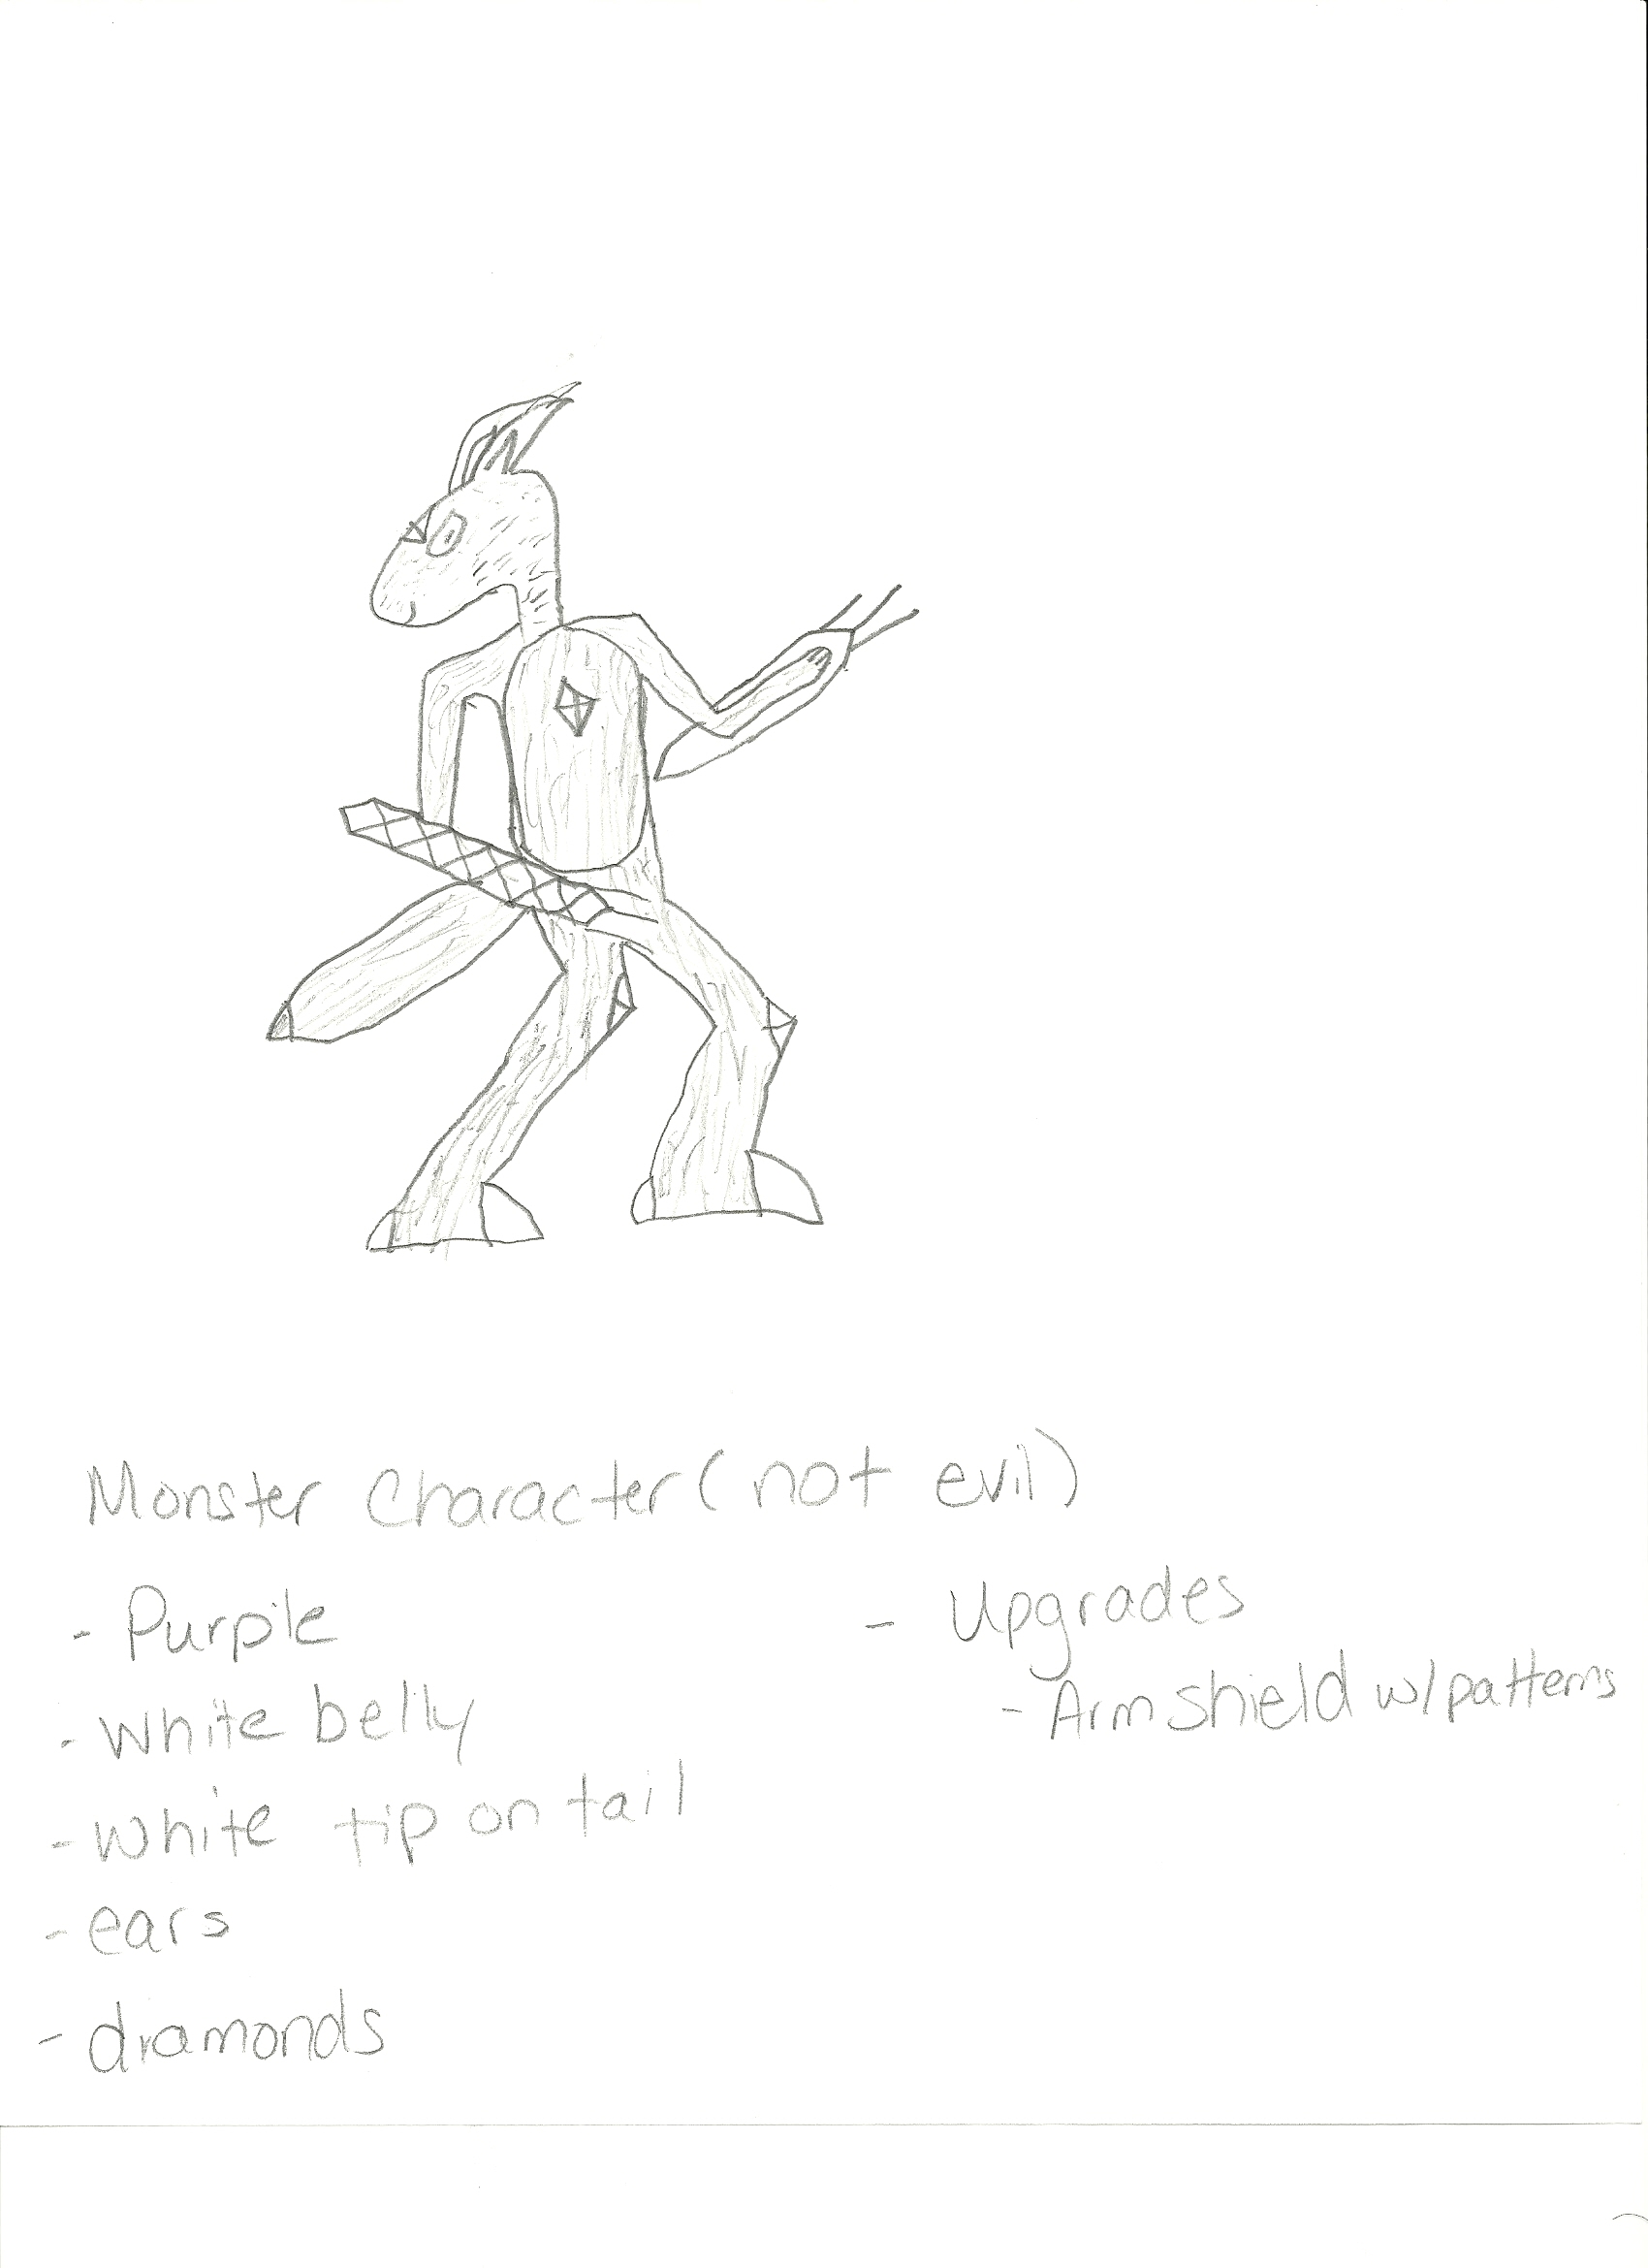 Monster Character (not evil)
- Purple
- White belly
- White tip on tail
- ears
- diamonds
- Upgrades
- Arm shield w/patterns